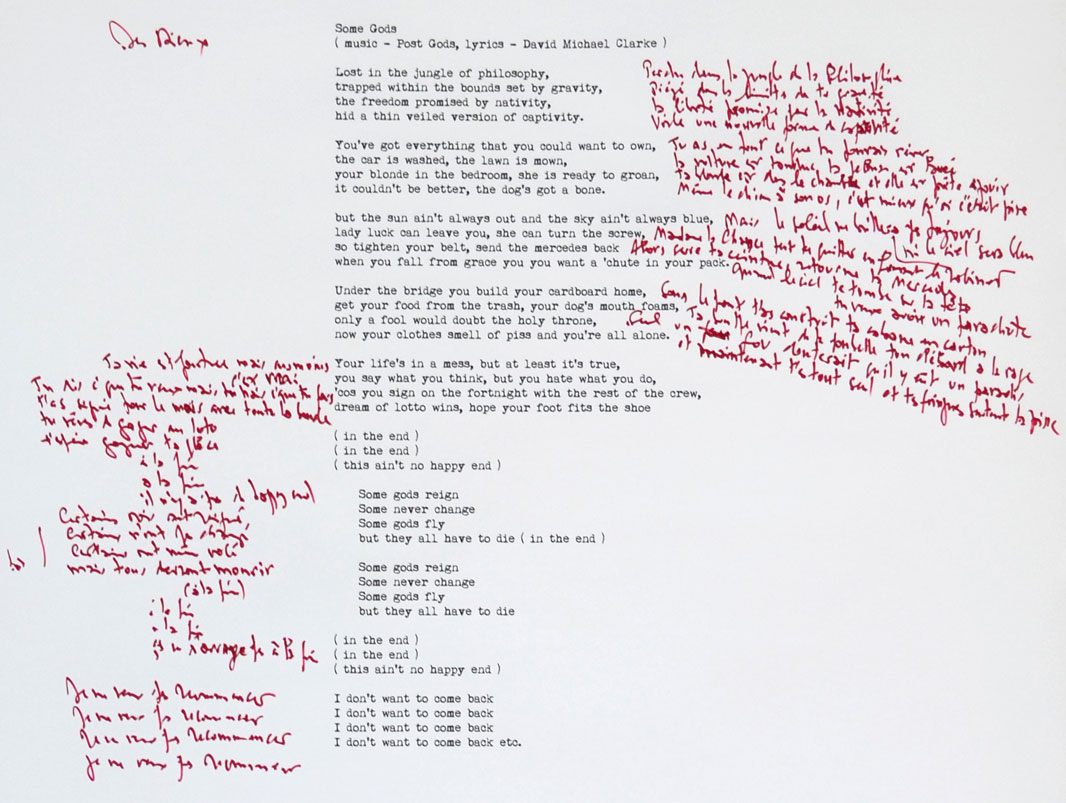 Des Dieux
Some Gods
( music - Post Gods, lyrics - David Michael Clarke )
Lost in the jungle of philosophy,
trapped within the bounds set by gravity,
the freedom promised by nativity,
hid a thin veiled version of captivity.
Perdu dans la jungle de la Philosophie
Piégé dans les limites de la gravité
la liberté promise par la Nativité
Voile une nouvelle forme de captivité
You've got everything that you could want to own,
the car is washed, the lawn is mown,
your blonde in the bedroom, she is ready to groan,
it couldn't be better, the dog's got a bone.
Tu as tout ce que tu pouvais rêver
la voiture est la pelouse est
ta blonde est dans la chambre et elle est prête à
Même le chien a son os, c'est mieux que si c'était pire
but the sun ain't always out and the sky ain't always blue,
lady luck can leave you, she can turn the screw,
so tighten your belt, send the mercedes back
when you fall from grace you you want a 'chute in your pack.
Mais le soleil ne brillera pas toujours
ni le ciel sera bleu
Madame la Chance peut te quitter en fermant le robinet
Alors serre ta ceinture, retourne la Mercedes
Quand le ciel te tombe sur la tête
tu veux avoir un parachute
Under the bridge you build your cardboard home,
get your food from the trash, your dog's mouth foams,
only a fool would doubt the holy throne,
now your clothes smell of piss and you're all alone.
Sous le pont tu construit ta cabane en carton
Ta bouffe vient de la poubelle ton clébard a la rage
Seul
un fou douterait qu'il y ait un paradis,
et maintenant t'es tout seul et tes fringues sentent la pisse
Your life's in a mess, but at least it's true,
you say what you think, but you hate what you do,
'cos you sign on the fortnight with the rest of the crew,
dream of lotto wins, hope your foot fits the shoe
Ta vie est foutue mais au moins
c'est vrai
Tu dis c'que tu veux mais, tu hais c'que tu fais
t'es pour le mois avec toute la bande
tu rêves de gagner au loto
gagner ta place
( in the end )
( in the end )
( this ain't no happy end )
à la fin
à la fin
il n'y a pas de happy end
Some gods reign
Some never change
Some gods fly
but they all have to die ( in the end )
Certains ont régné,
Certains n'ont pas changé
Certains ont même volé
mais tous devront mourir
(à la fin)
bis
Some gods reign
Some never change
Some gods fly
but they all have to die
( in the end )
( in the end )
( this ain't no happy end )
à la fin
à la fin
pas à la fin
I don't want to come back
I don't want to come back
I don't want to come back
I don't want to come back etc.
Je ne veux pas recommencer
Je ne veux pas recommencer
Je ne veux pas recommencer
Je ne veux pas recommencer